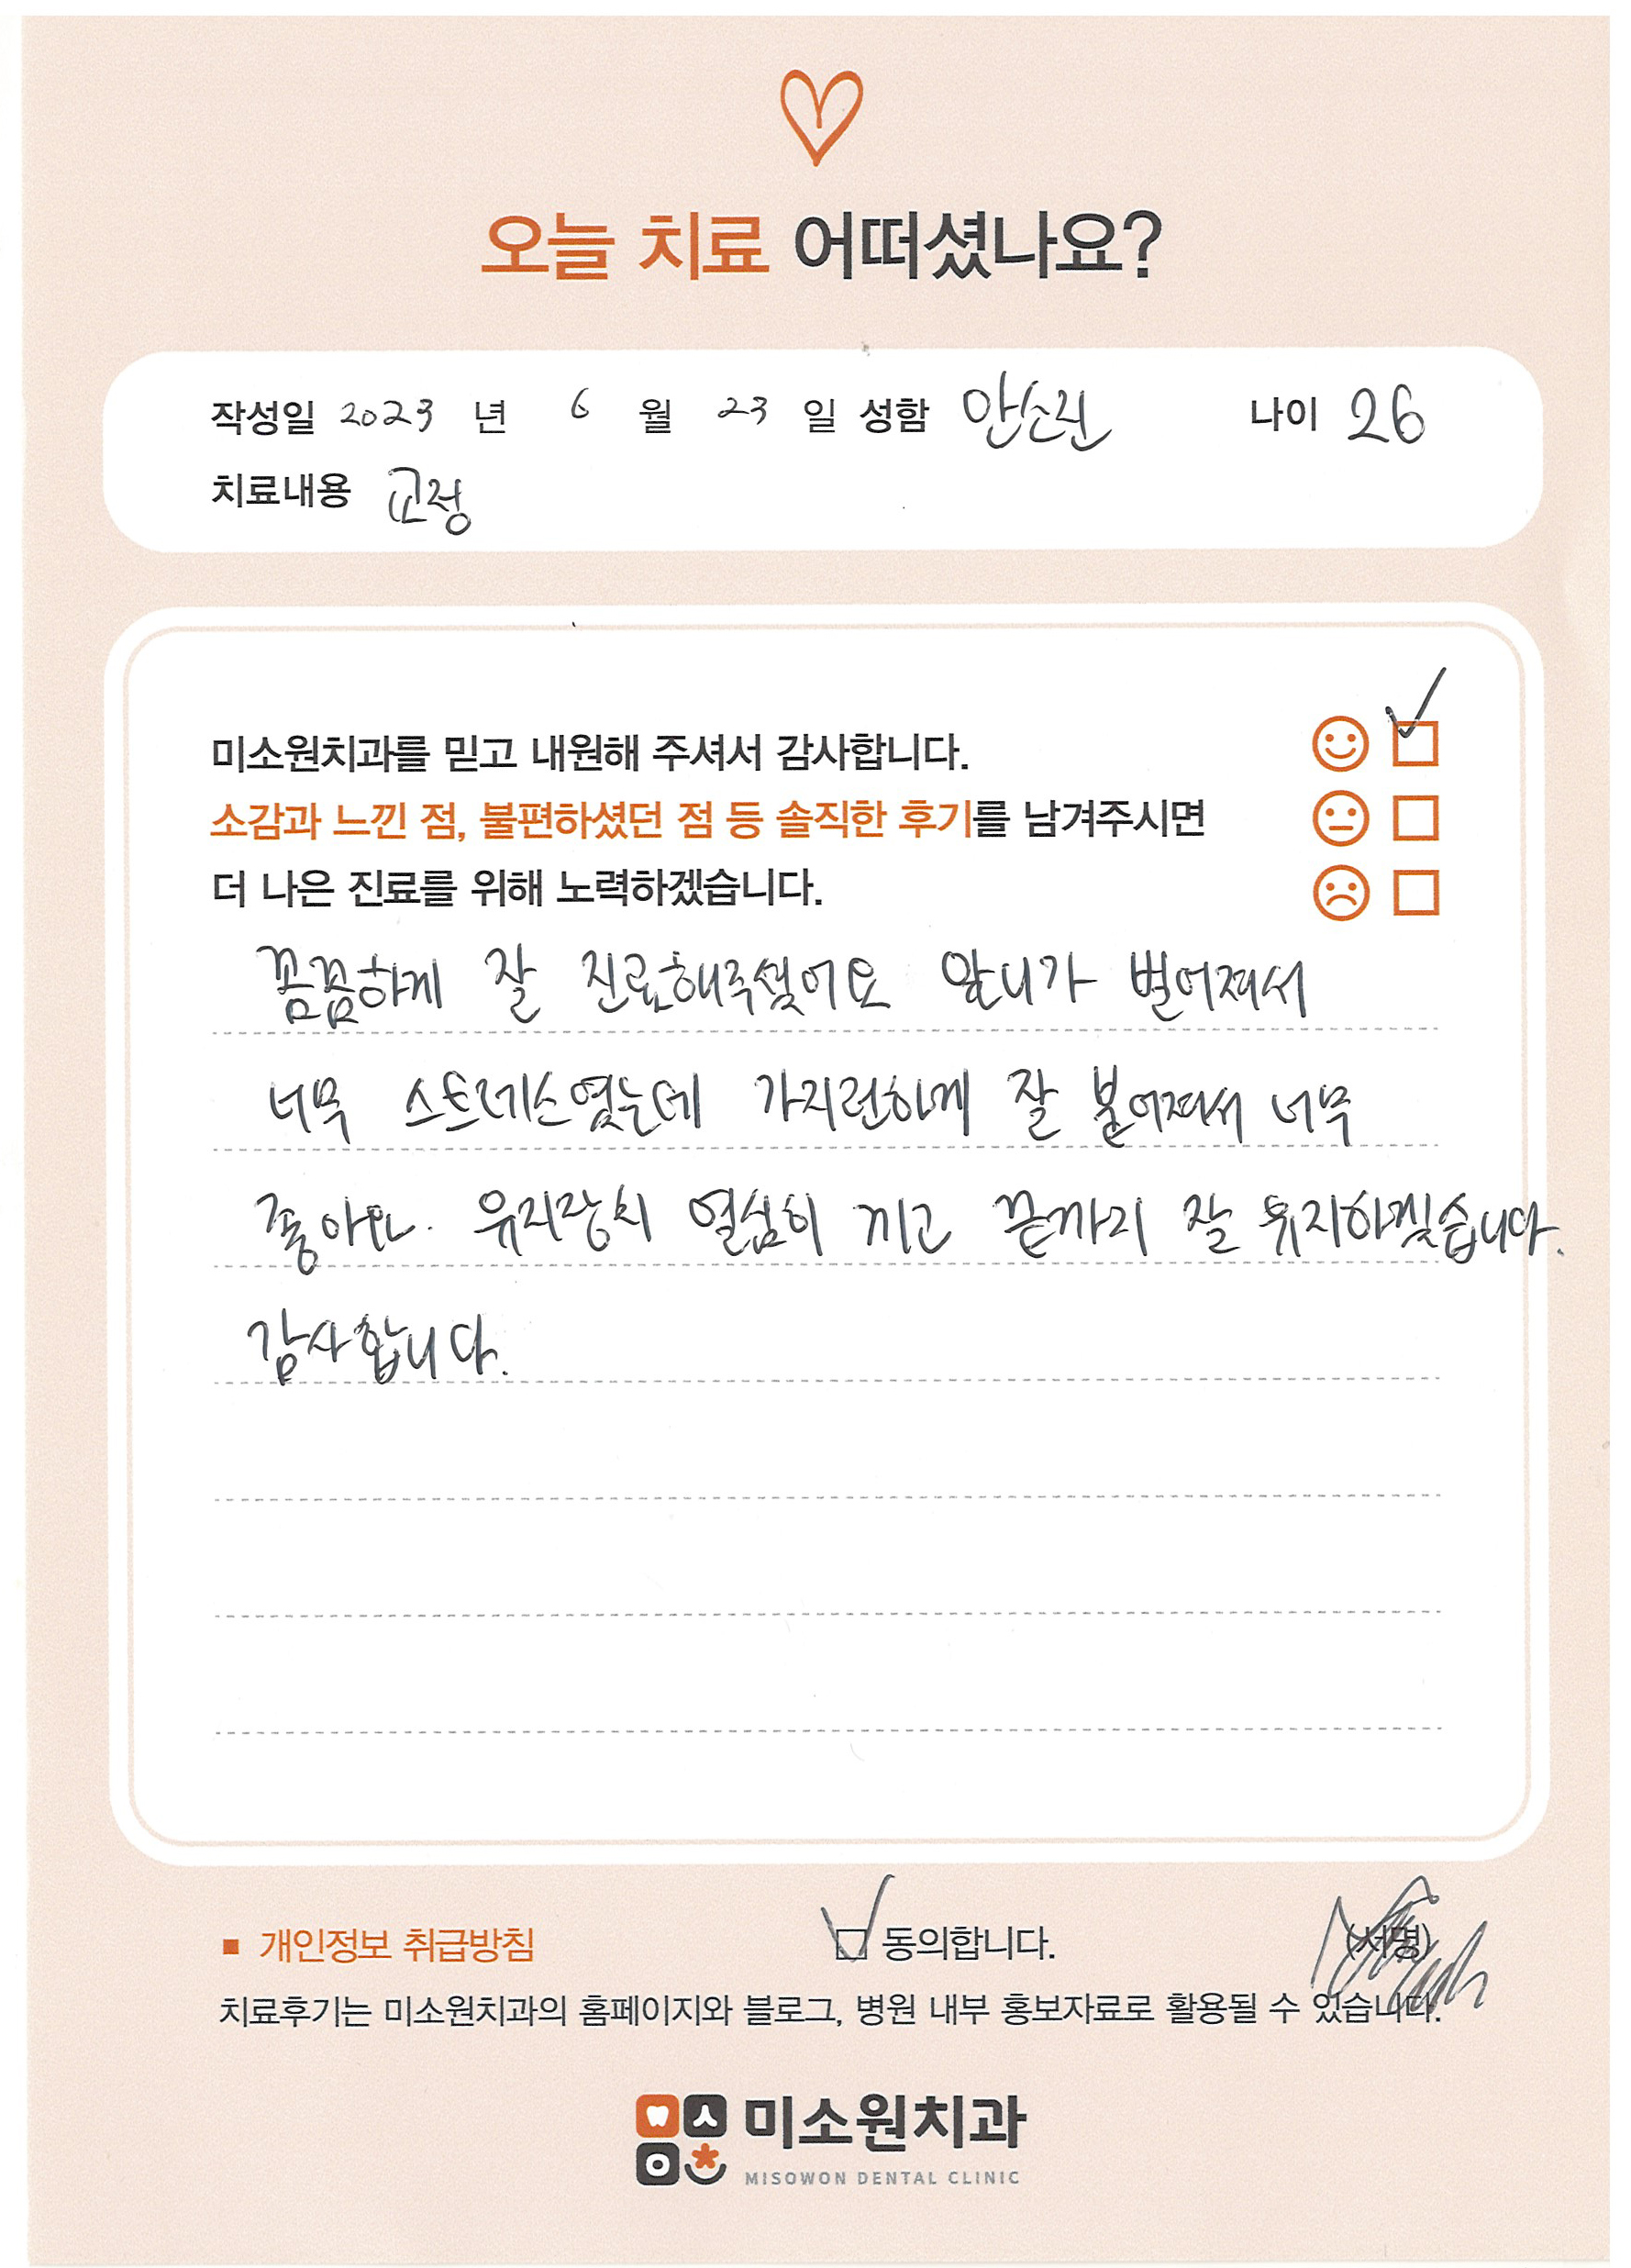 오늘 치료 어떠셨나요?
작성일 2023 년 6 월 23 일 성함 안소린 나이 26
치료내용 교정
미소원치과를 믿고 내원해 주셔서 감사합니다.
소감과 느낀 점, 불편하셨던 점 등 솔직한 후기를 남겨주시면
더 나은 진료를 위해 노력하겠습니다.
꼼꼼하게 잘 진료해주셨어요 앞니가 벌어져서
너무 스트레스였는데 가지런하게 잘 붙어져서 너무
좋아요. 유지장치 열심히 끼고 끝까지 잘 유지하겠습니다.
감사합니다.
■ 개인정보 취급방침 동의합니다. (서명)
치료후기는 미소원치과의 홈페이지와 블로그, 병원 내부 홍보자료로 활용될 수 있습니다.
미소원치과
MISOWON DENTAL CLINIC